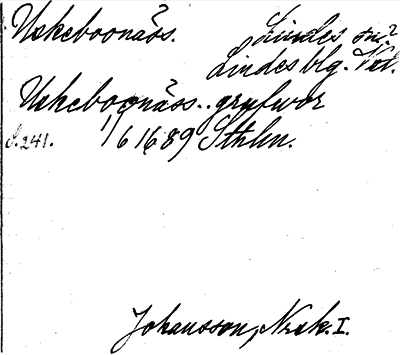 Uskeboonäs. Lindes sn?
Lindesblg. Vst.
Uskeboonäss. grufwor
S. 241. 1/6 1689 Sthlm.
Johansson, Norak. I.